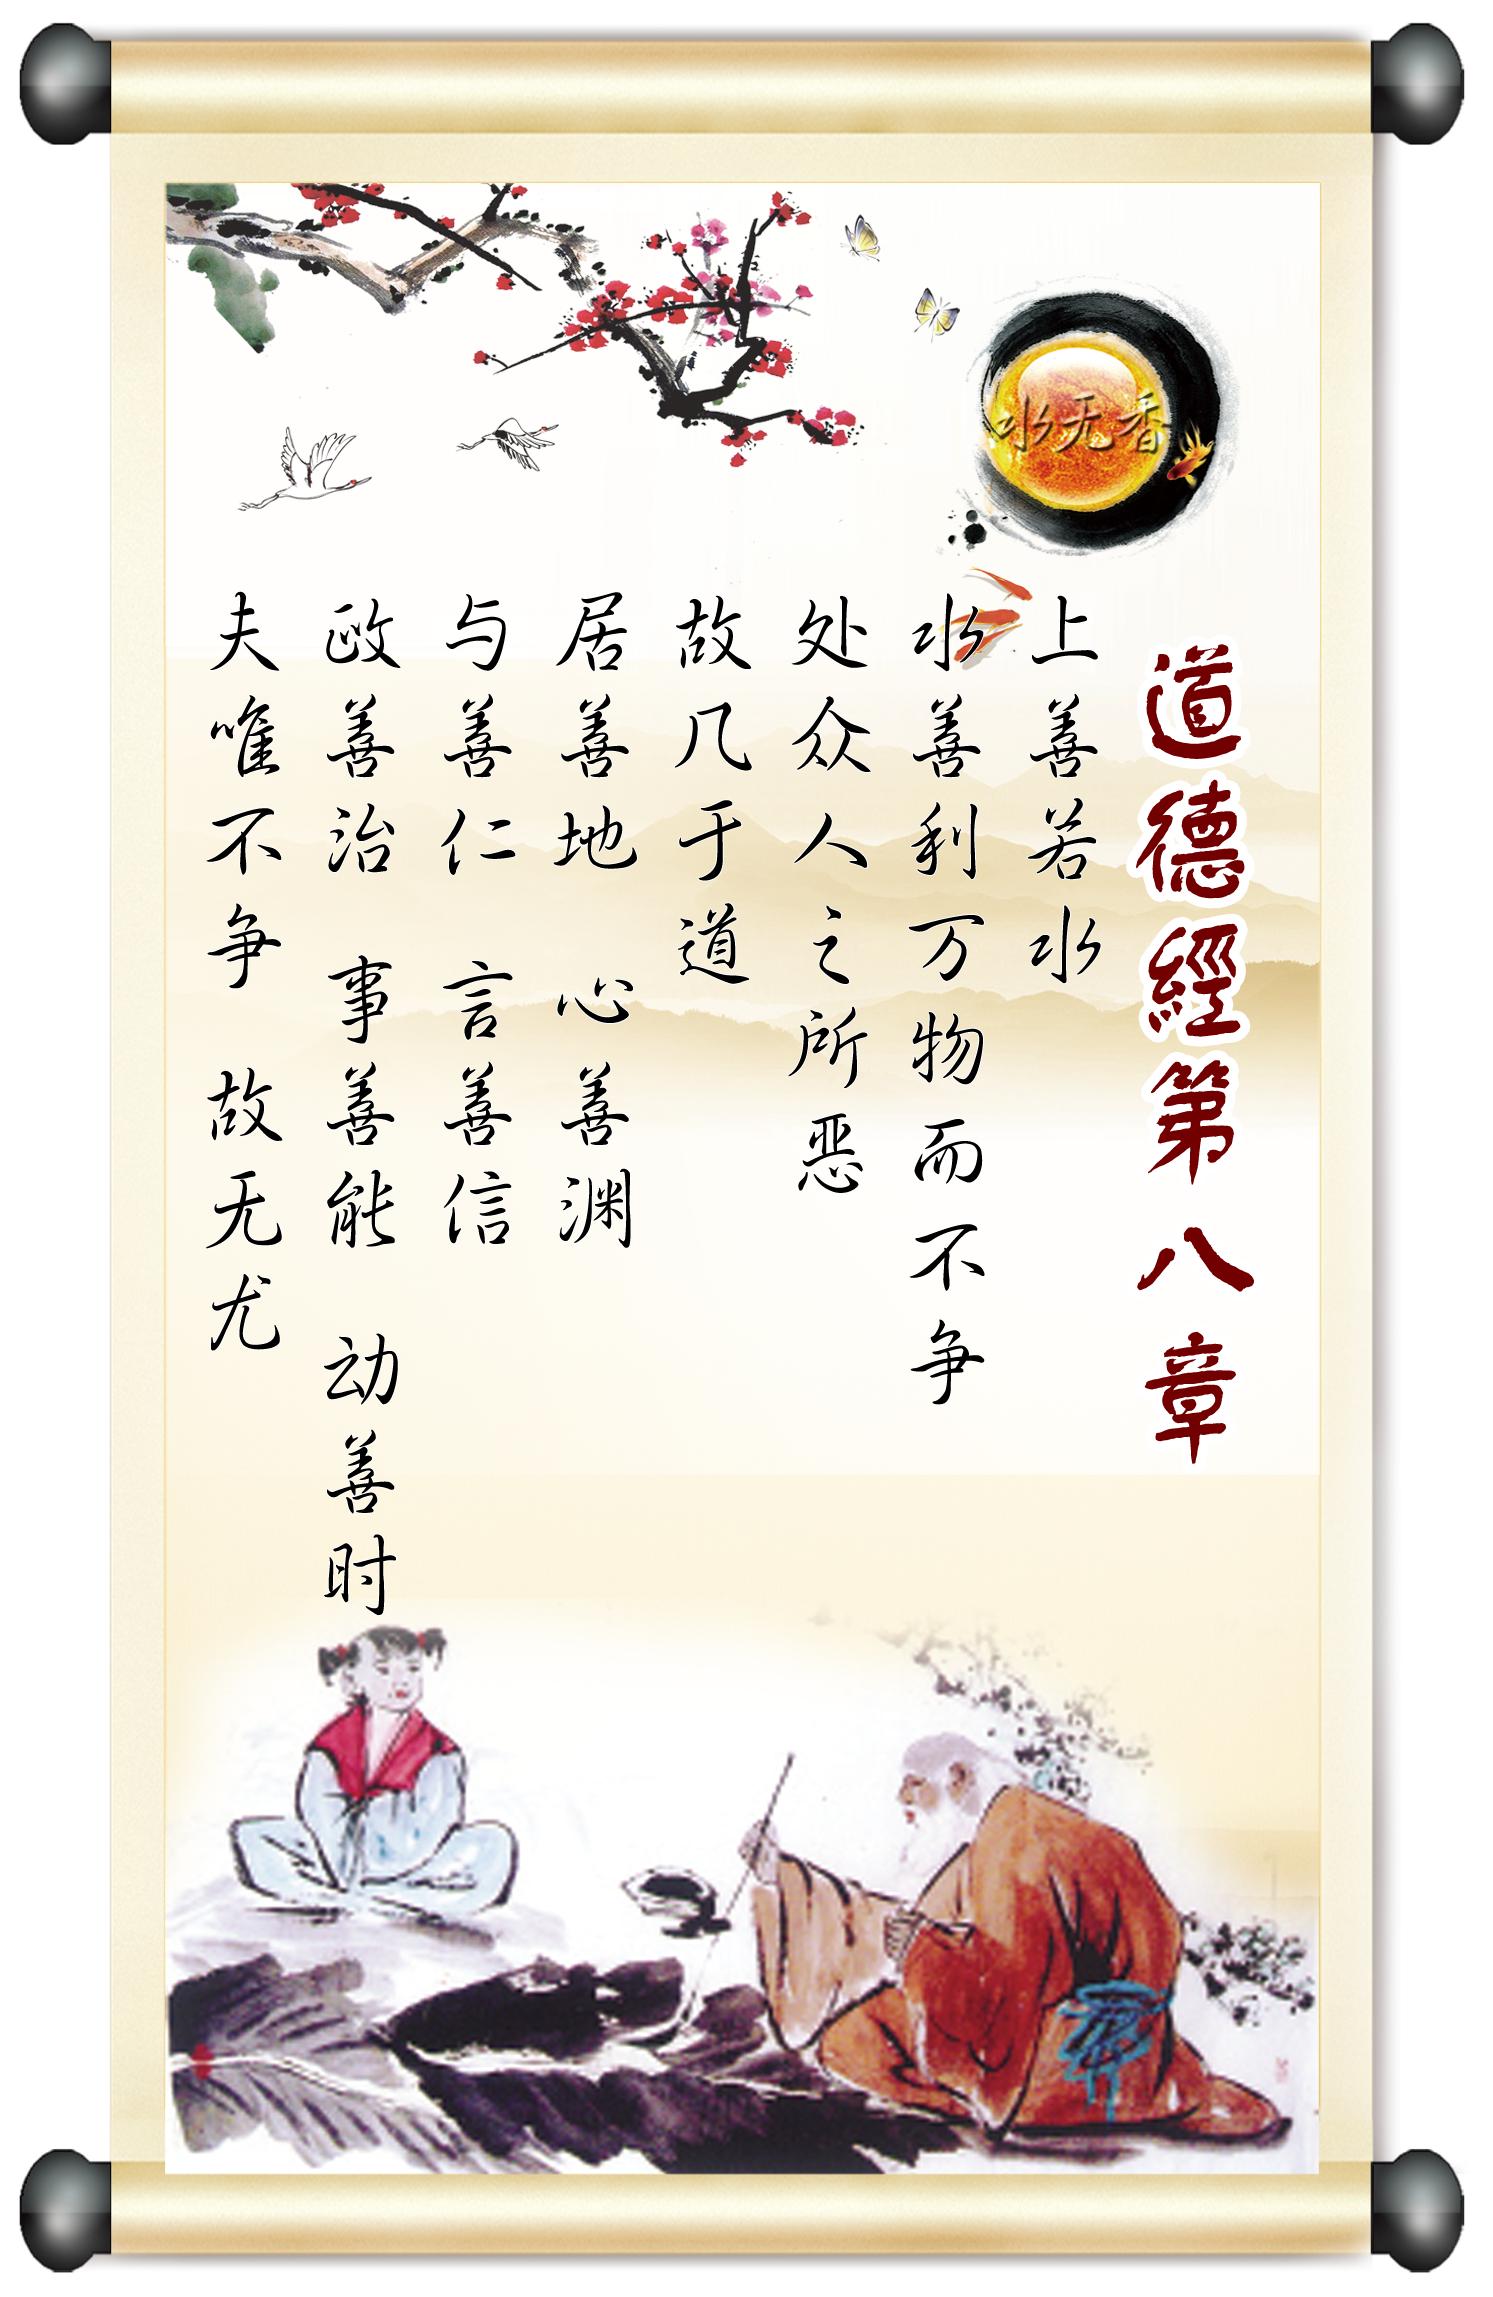 水无香
道德經第八章
上善若水
水善利万物而不争
处众人之所恶
故几于道
居善地 心善渊
与善仁 言善信
政善治 事善能 动善时
夫唯不争 故无尤